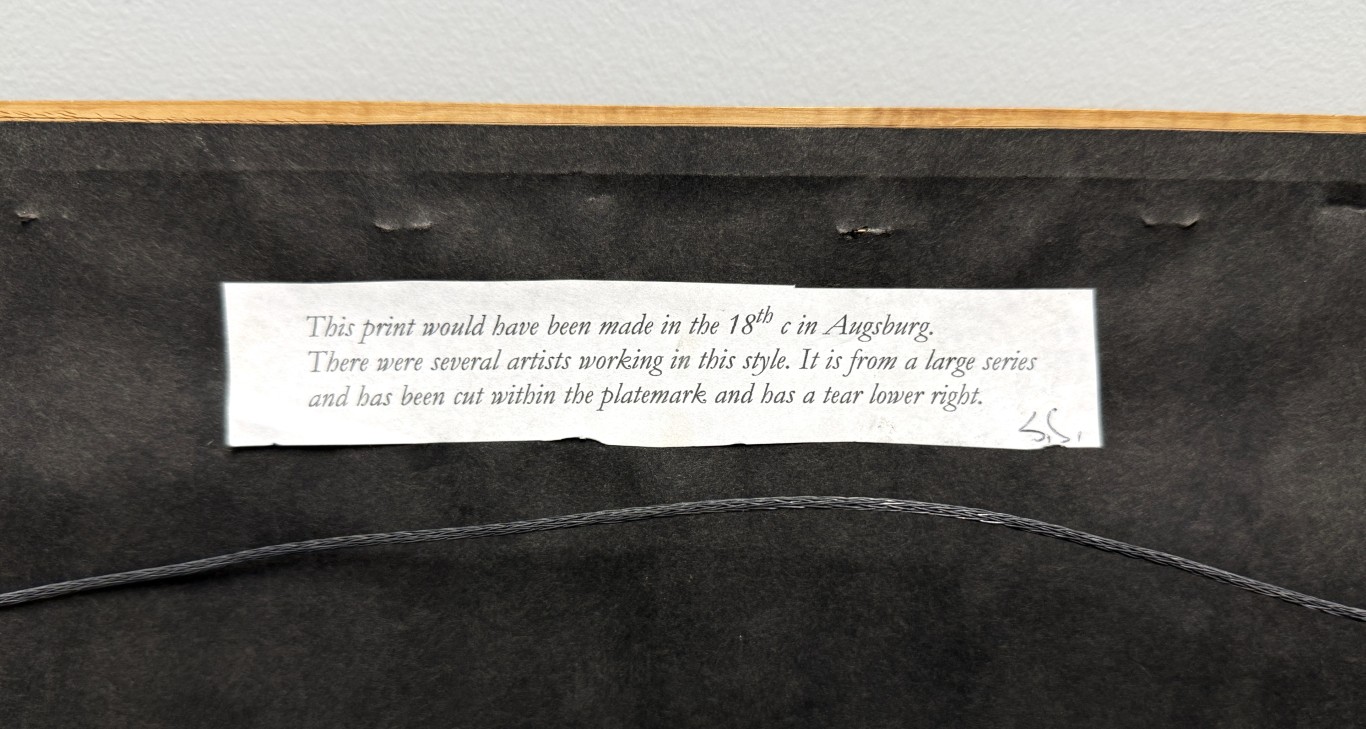 This print would have been made in the 18th c in Augsburg.
There were several artists working in this style. It is from a large series
and has been cut within the platemark and has a tear lower right.
S.S.